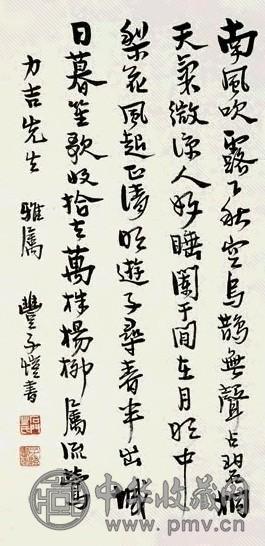 南風吹露下秋空烏鵲無聲占碧桐
天氣微涼人好睡闌干間在月明中
梨花風起正清明遊子尋春半出城
日暮笙歌收拾去萬株楊柳屬流鶯
力吉先生 雅屬 豐子愷書
中华收藏网
www.pmv.cn